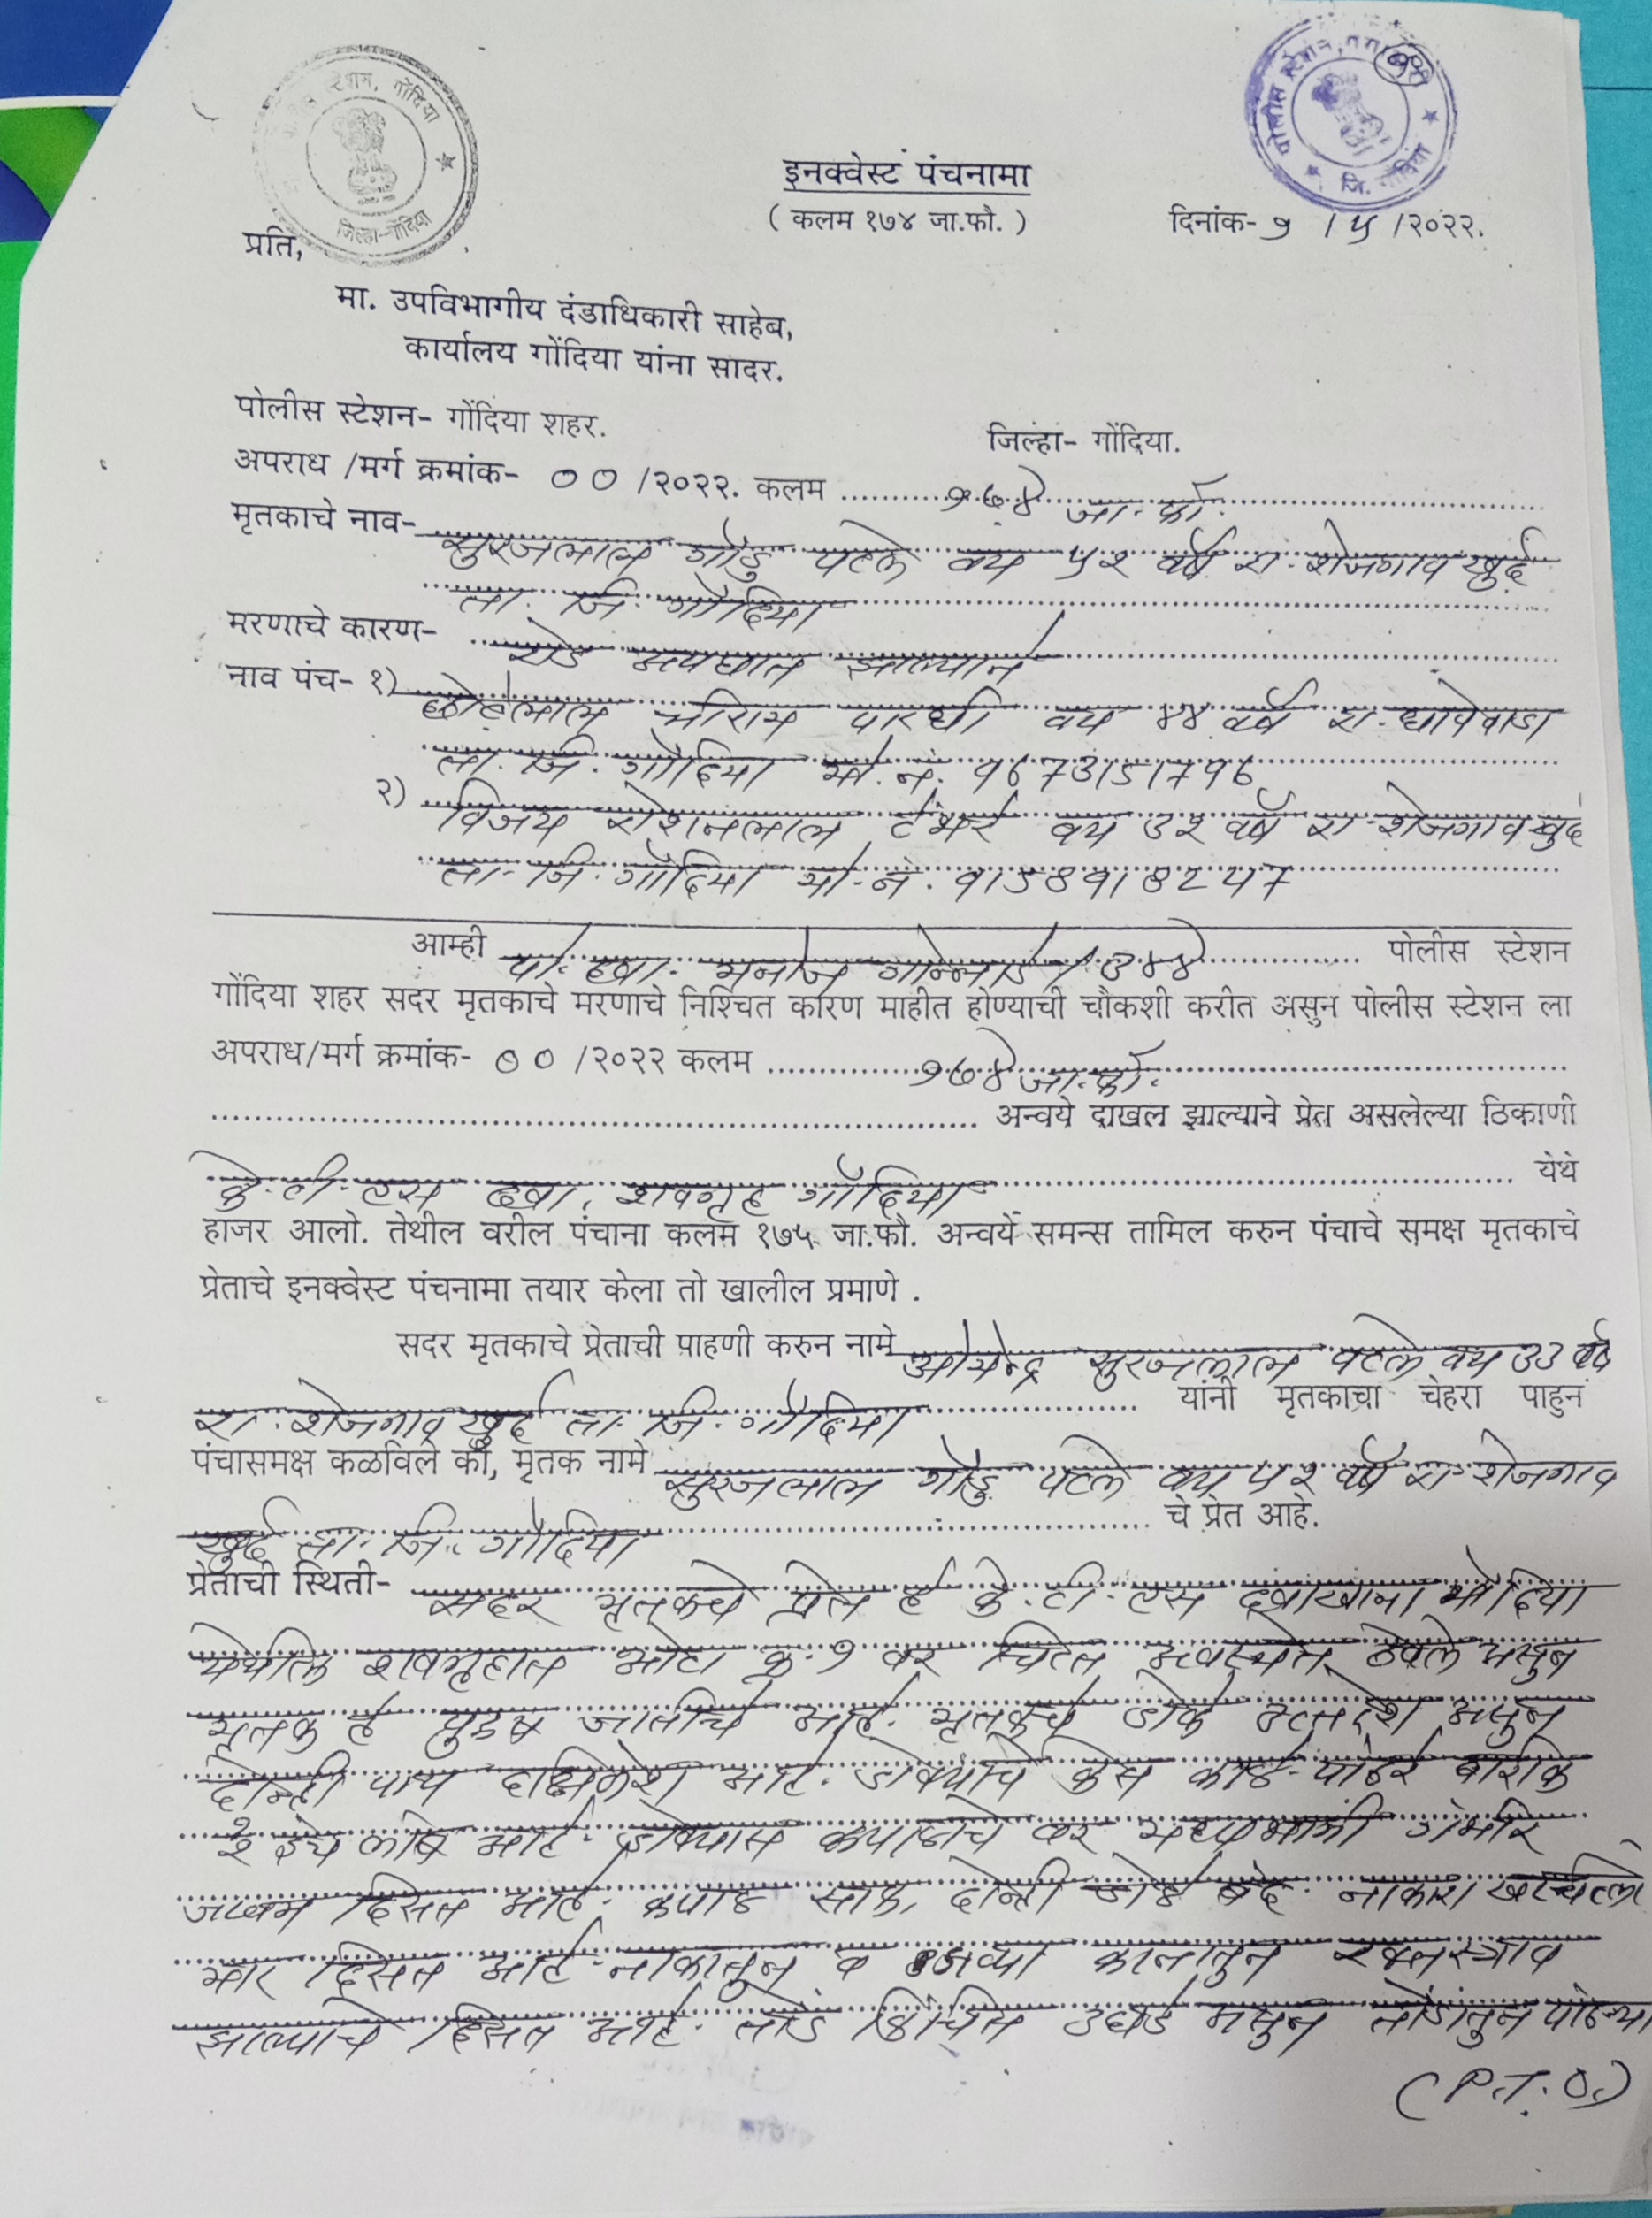 स्टेशन, गोंदिया
जिल्हा-गोंदिया
पोलीस स्टेशन,
जि. गोंदिया
इनक्वेस्ट पंचनामा
( कलम १७४ जा.फौ. )
दिनांक- १ / ५ /२०२२.
प्रति,
मा. उपविभागीय दंडाधिकारी साहेब,
कार्यालय गोंदिया यांना सादर.
पोलीस स्टेशन- गोंदिया शहर.
जिल्हा- गोंदिया.
अपराध /मर्ग क्रमांक- ०० /२०२२. कलम १७४ जा. फौ.
मृतकाचे नाव- सुरजलाल गोंडु पटले वय ५२ वर्ष रा. शेजगाव खुर्द
ता. जि. गोंदिया
मरणाचे कारण- रोड अपघात झाल्याने
नाव पंच- १) छोटेलाल पारधी वय ४४ वर्ष रा.
ता. जि. गोंदिया मो. नं.
२) विजय रोशनलाल टेंभरे वय ३२ वर्ष रा. शेजगाव खुर्द
ता. जि. गोंदिया मो. नं.
आम्ही पो. हवा. मनोज पोलीस स्टेशन
गोंदिया शहर सदर मृतकाचे मरणाचे निश्चित कारण माहीत होण्याची चौकशी करीत असुन पोलीस स्टेशन ला
अपराध/मर्ग क्रमांक- ०० /२०२२ कलम १७४ जा. फौ.
अन्वये दाखल झाल्याने प्रेत असलेल्या ठिकाणी
के. टी. एस दवा. शवगृह गोंदिया येथे
हाजर आलो. तेथील वरील पंचाना कलम १७५ जा.फौ. अन्वये समन्स तामिल करुन पंचाचे समक्ष मृतकाचे
प्रेताचे इनक्वेस्ट पंचनामा तयार केला तो खालील प्रमाणे .
सदर मृतकाचे प्रेताची पाहणी करुन नामे ओमेन्द्र सुरजलाल पटले वय ३३ वर्ष
रा. शेजगाव खुर्द ता. जि. गोंदिया यांनी मृतकाचा चेहरा पाहुन
पंचासमक्ष कळविले की, मृतक नामे सुरजलाल गोंडु पटले वय ५२ वर्ष रा. शेजगाव
खुर्द ता. जि. गोंदिया चे प्रेत आहे.
प्रेताची स्थिती- सदर मृतकचे प्रेत हे के. टी. एस दवाखाना गोंदिया
येथील शवगृहात ओटा क्र. १ वर चित्त अवस्थेत ठेवले असुन
मृतक हे पुरुष जातीचे आहे. मृतकचे डोके उत्तरेस असुन
दोन्ही पाय दक्षिणेस आहे. डोक्याचे केस काळे-पांढरे बारीक
इंच लांब आहे. डोक्यास कपाळाचे वर मध्यभागी गंभीर
जखम दिसत आहे. कपाळ साफ, दोन्ही डोळे बंद. नाकाला
मार दिसत आहे. नाकातुन व उजव्या कानातुन रक्तस्त्राव
झाल्याचे दिसत आहे. तोंड किंचित उघडे असुन तोंडातुन
(P.T.O.)